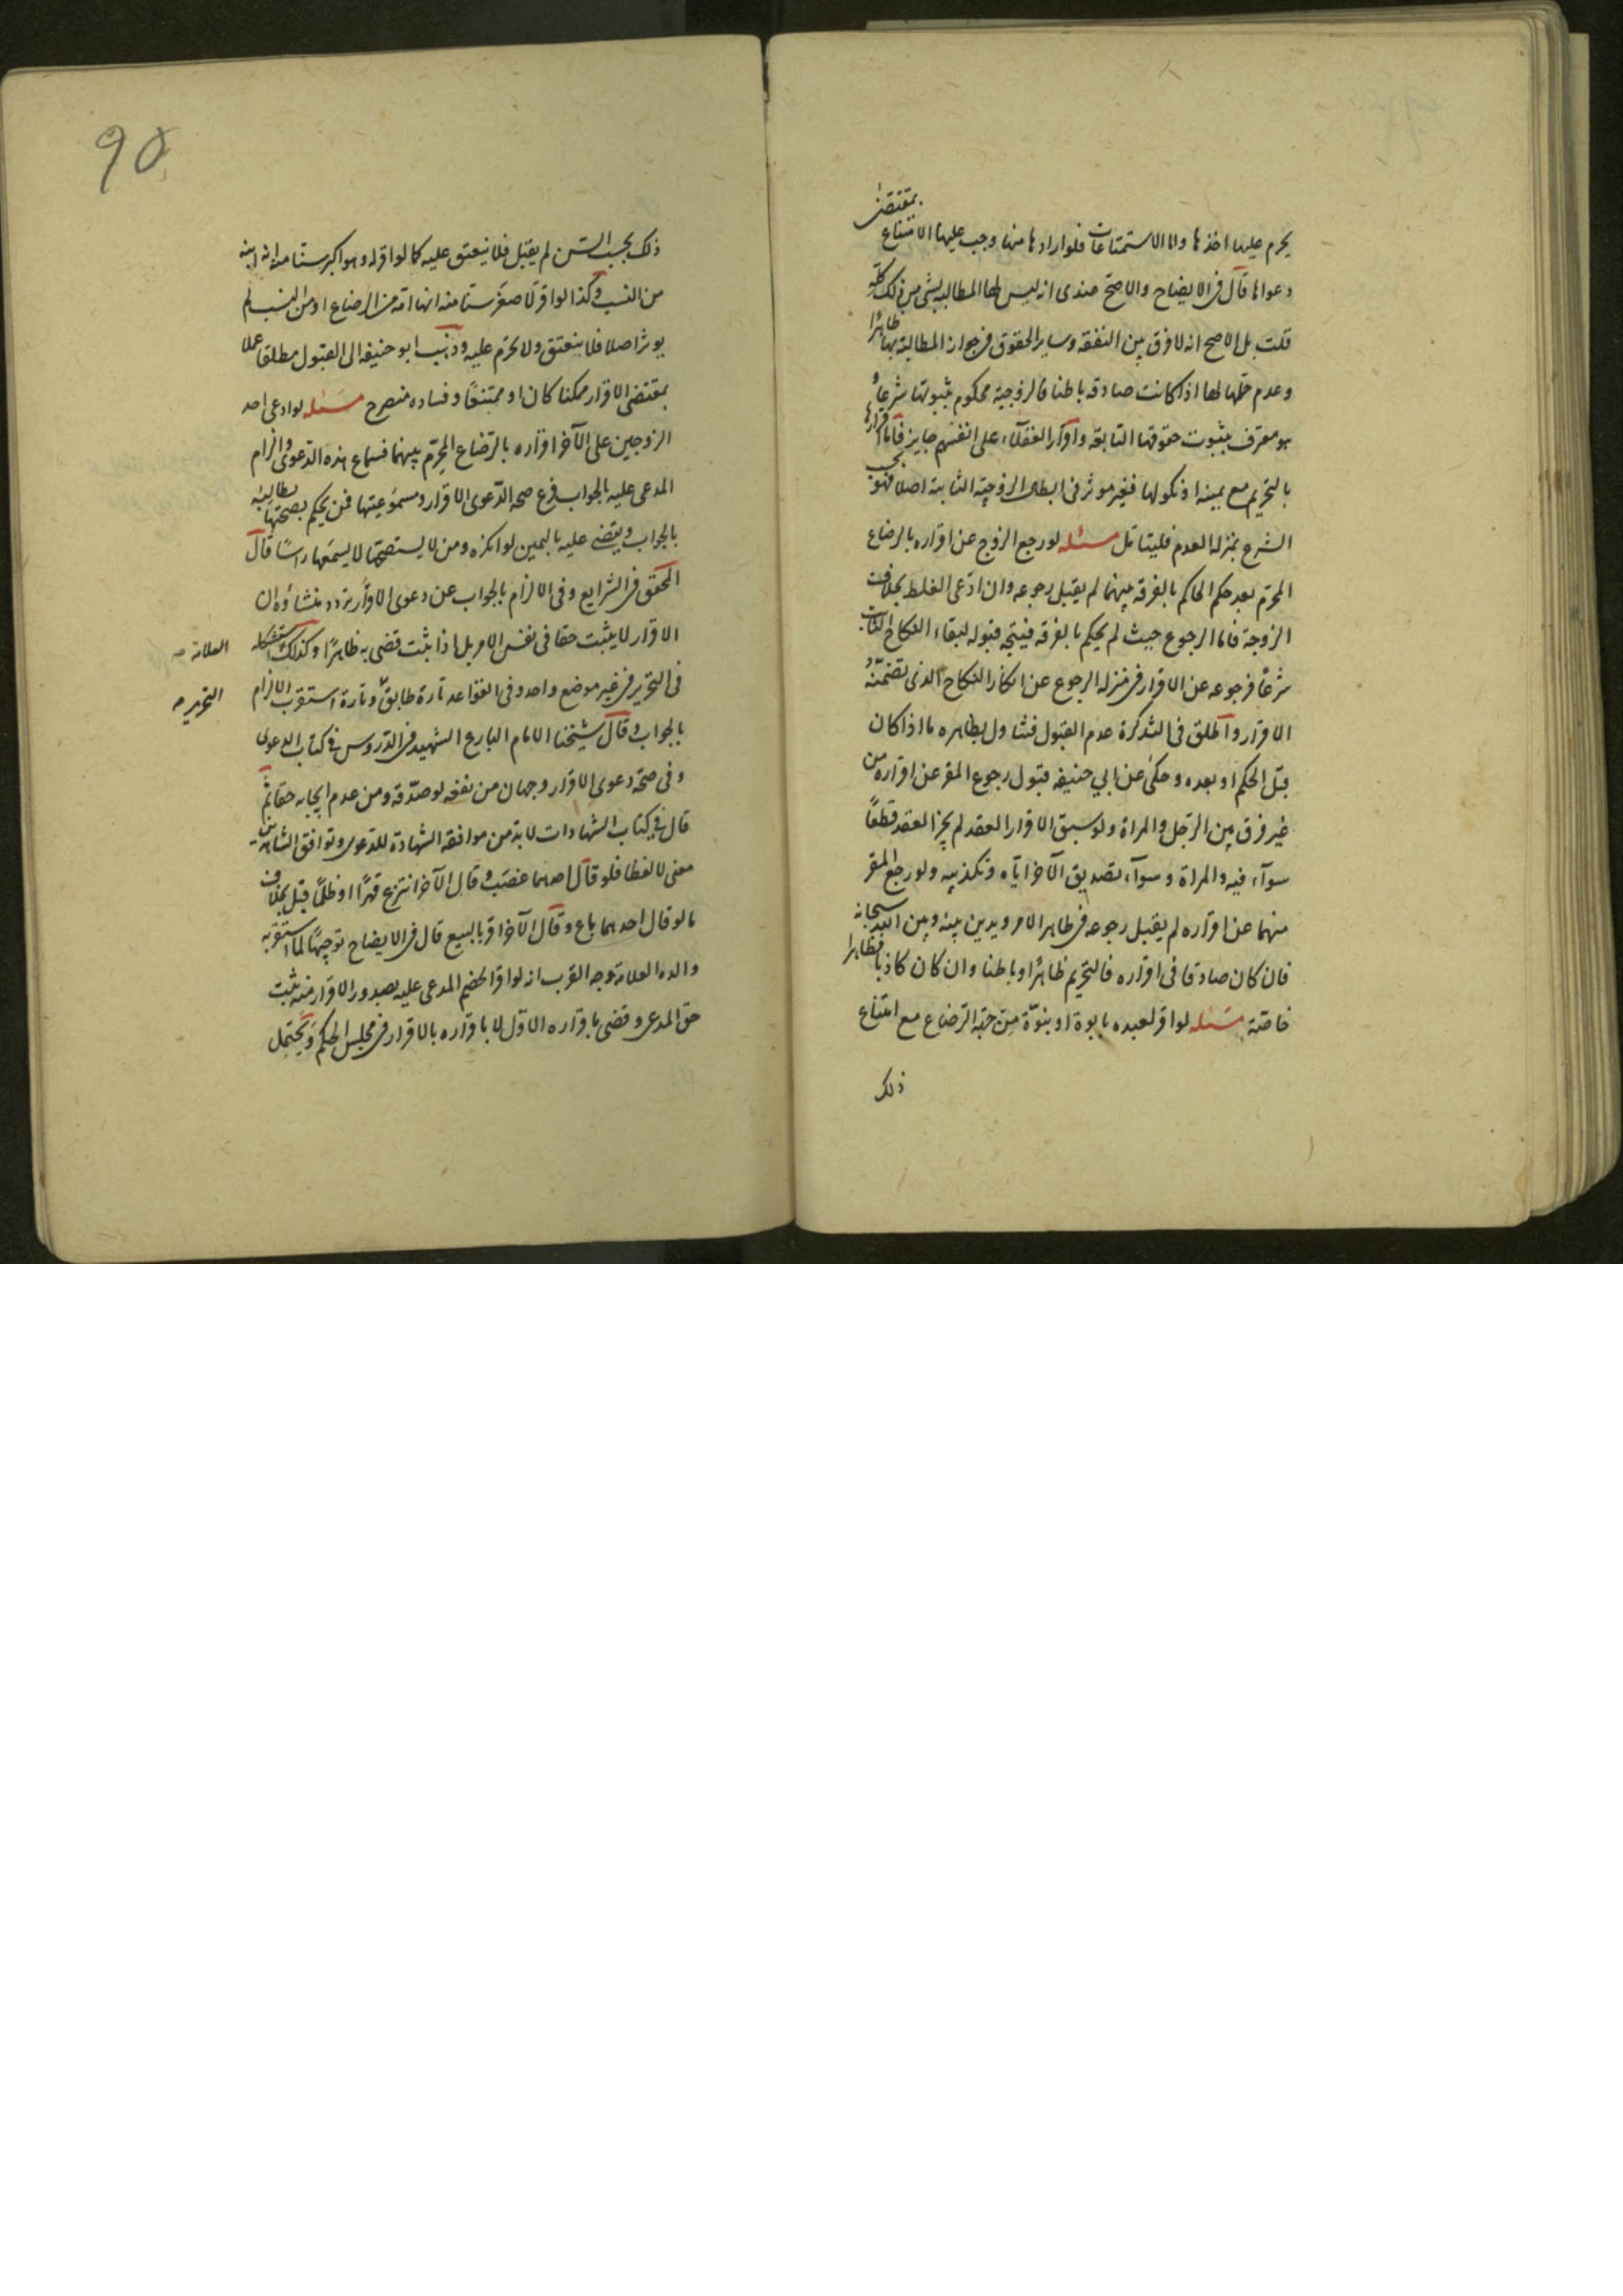 يحرم عليها اخذها ولا الاستمتاعات فلو ارادها منها وجب عليها الامتناع بمقتضى
دعواها قال في الايضاح والاصح عندى انه ليس لها المطالبة بشئ من ذلك كله
قلت بل الاصح انه لا فرق بين النفقه وساير الحقوق في جواز المطالبة بها ظاهرًا
وعدم حلها لها اذا كانت صادقه باطنا فالزوجية محكوم بثبوتها شرعًا و
هو معترف بثبوت حقوقها التابعة واقرار العقلاء على انفسهم جايز فاما اقرارها
بالتحريم مع يمينه او نكولها فغير موثر فى ابطال الزوجية الثابتة اصلا فهو بحسب
الشرع بمنزلة العدم فليتامل مسئله لو رجع الزوج عن اقراره بالرضاع
المحرم بعد حكم الحاكم بالفرقه بينهما لم يقبل رجوعه وان ادّعى الغلط بخلاف
الزوجة فاما الرجوع حيث لم يحكم بالفرقه فيتجه قبوله لبقاء النكاح الثابت
شرعًا فرجوعه عن الاقرار في منزلة الرجوع عن انكار النكاح الذى تضمنه
الاقرار واطلق فى التذكرة عدم القبول فتناول بظاهره ما اذا كان
قبل الحكم او بعده وحكى عن ابي حنيفه قبول رجوع المقر عن اقراره من
غير فرق بين الرجل والمراة ولو سبق الاقرار العقد لم يجز العقد قطعًا
سوآء فيه والمراة وسوآء تصديق الآخر ايّاه وتكذيبه ولو رجع المقر
منهما عن اقراره لم يقبل رجوعه فى ظاهر الامر ويدين بينه وبين الله سبحانه
فان كان صادقا فى اقراره فالتحريم ظاهرًا وباطنا وان كان كاذبا فظاهرا
خاصّة مسئله لو اقر لعبده بابوة او بنوّة من جهة الرضاع مع امتناع
ذلك
90
ذلك بحسب السّن لم يقبل فلا ينعتق عليه كما لو اقر له وهو اكبر سنا منه انه ابنه
من النسب وكذا لو اقر لاصغر سنا منه انها امه من الرضاع او من النسب لم
يوثر اصلا فلا ينعتق ولا يحرم عليه وذهب ابو حنيفه الى القبول مطلقا عملا
بمقتضى الاقرار ممكنا كان او ممتنعًا وفساده منصرح مسئله لو ادعى احد
الزوجين على الآخر اقراره بالرضاع المحرّم بينهما فسماع هذه الدّعوى والزام
المدعى عليه بالجواب فرع صحة الدّعوى الاقرار ومسموعيتها فمن يحكم بصحتها يطالبه
بالجواب ويقضى عليه باليمين لو انكره ومن لا يستصحها لا يسمعها راسًا قال
المحقق في الشرايع وفى الالزام بالجواب عن دعوى الاقرار تردد منشاؤه ان
الاقرار لا يثبت حقا فى نفس الامر بل اذا ثبت قضى به ظاهرًا وكذلك استشكله
العلامة ص
فى التحرير في غير موضع واحد وفى القواعد تارة طابق و وتارة استقرب الالزام
التحرير ص
بالجواب وقال شيخنا الامام البارع الشهيد في الدّروس في كتاب الدعوى
وفى صحة دعوى الاقرار وجهان من نفعه لو صدّقه ومن عدم ايجابه حقا ثم
قال في كتاب الشهادات لا بدّ من موافقة الشهادة للدّعوى وتوافق الشاهدين
معنى لا لفظا فلو قال احدهما غصب وقال الآخر انتزع قهرًا او ظلمًا قبل بخلاف
ما لو قال احدهما باع وقال الآخر اقر بالبيع قال في الايضاح توجيهًا لما استقربه
والده العلامة وجه القرب انه لو اقر الخصم المدعى عليه بصدور الاقرار منه ثبت
حق المدعى وقضى باقراره الاوّل لا باقراره بالاقرار فى مجلس الحكم ويحتمل